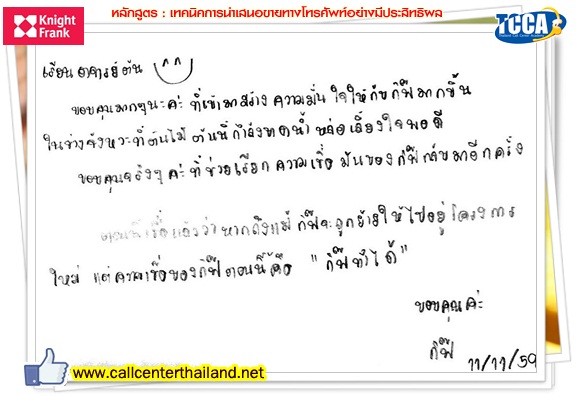 หลักสูตร : เทคนิคการนำเสนอขายทางโทรศัพท์อย่างมีประสิทธิผล
Knight
Frank
TCCA
เรียน อาจารย์ต้น
ขอบคุณมากๆนะค่ะ ที่เข้ามาสร้าง ความมั่นใจให้กับกิ๊ฟมากขึ้น
ในช่วงจังหวะที่ต้นไม้ ต้นนี้กำลังขาดน้ำ หล่อเลี้ยงใจพอดี
ขอบคุณจริงๆ ค่ะ ที่ช่วยเรียก ความเชื่อมั่นของ กิ๊ฟกลับมาอีกครั้ง
ตอนนี้เชื่อแล้วว่าหากถึงแม้ กิ๊ฟจะถูกย้ายให้ไปอยู่โครงการ
ใหม่ แต่ความเชื่อของกิ๊ฟตอนนี้คือ "กิ๊ฟทำได้"
ขอบคุณค่ะ
กิ๊ฟ 11/11/59
www.callcenterthailand.net